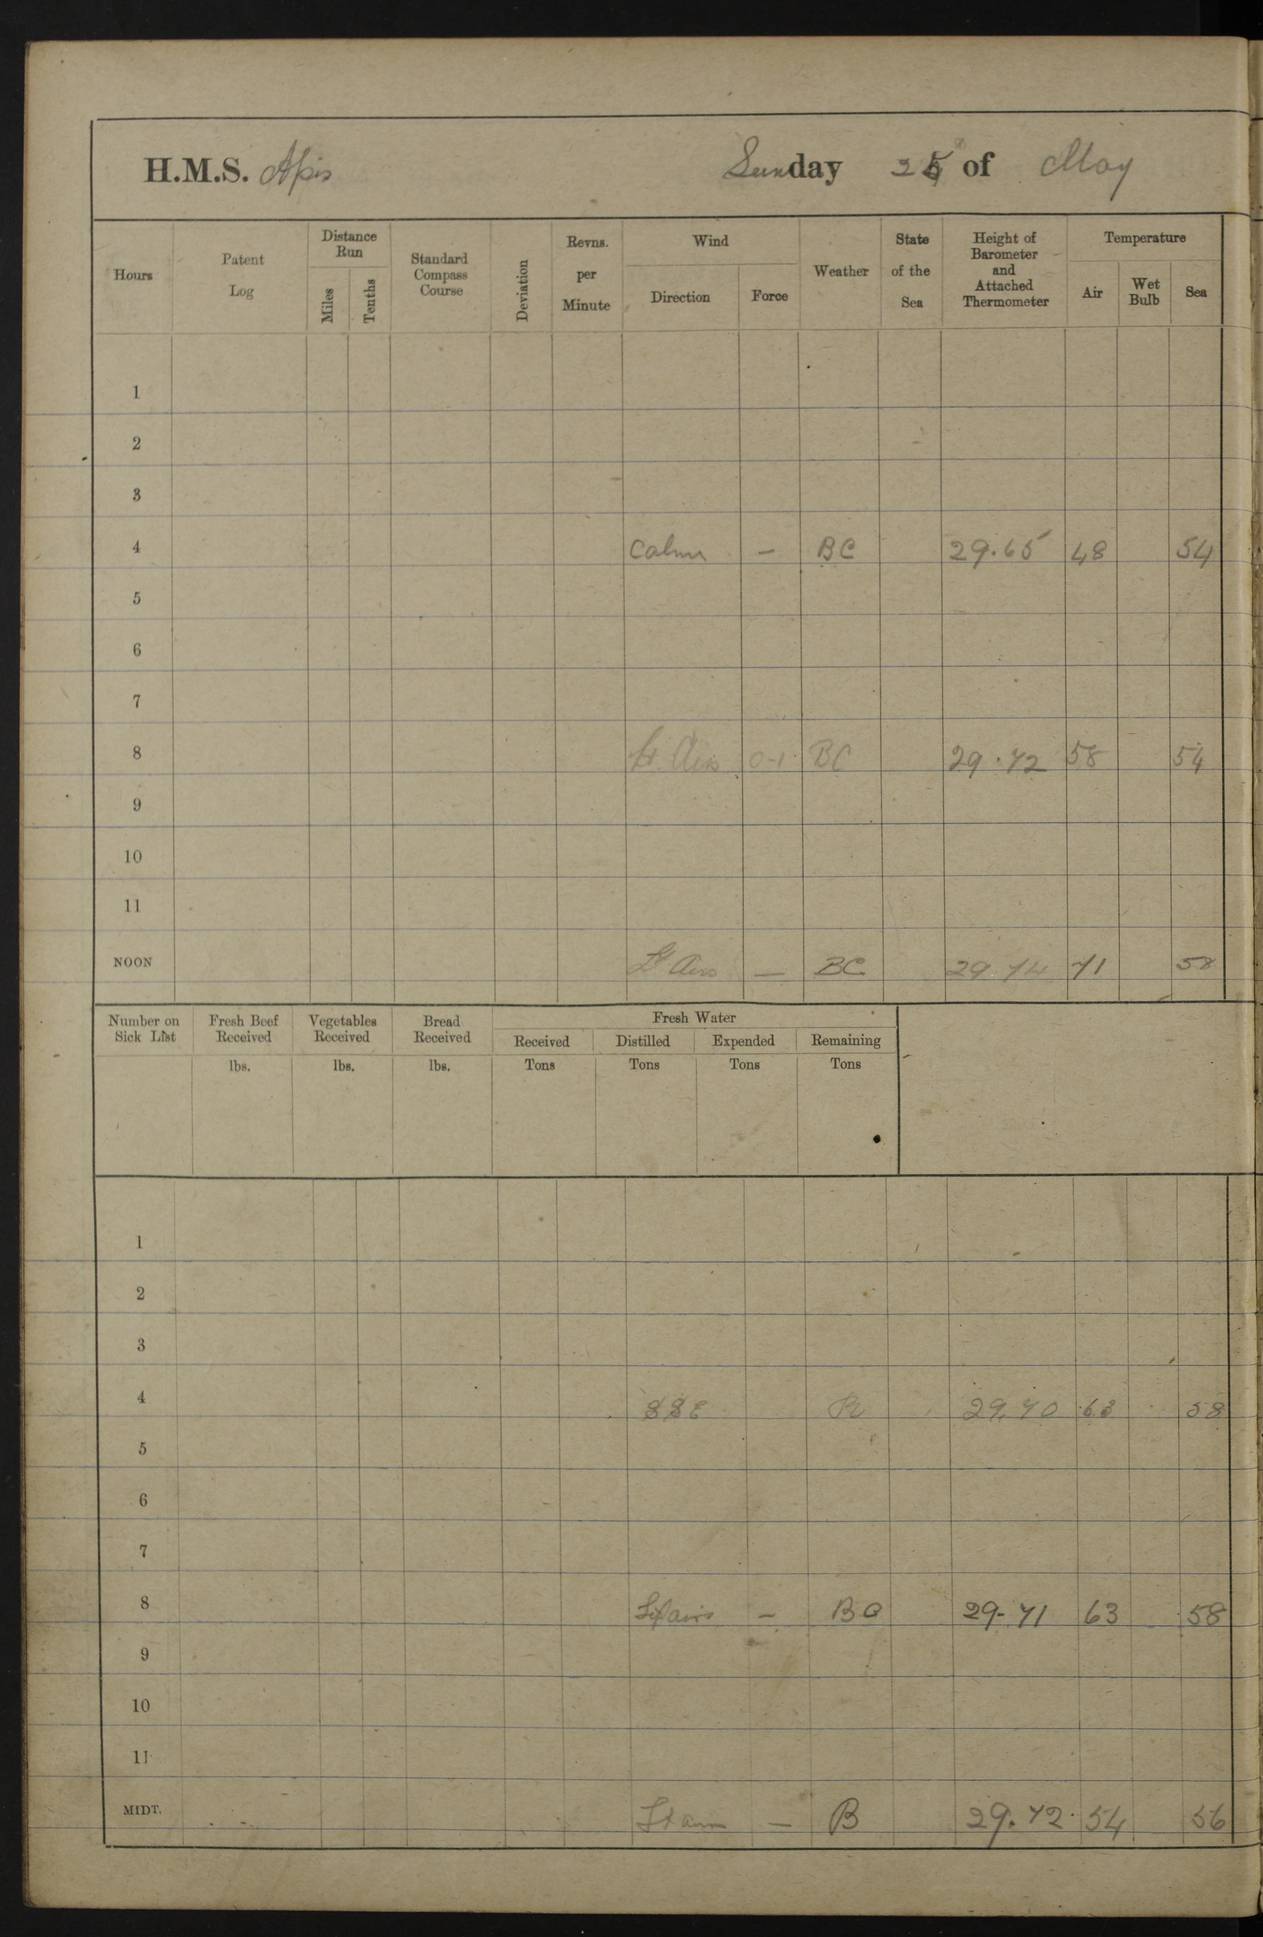 H.M.S. Apis Sunday 25 of May
Hours Patent Log Distance Run Miles Tenths Standard Compass Course Deviation Revns. per Minute Wind Direction Force Weather State of the Sea Height of Barometer and Attached Thermometer Temperature Air Wet Bulb Sea
1
2
3
4 Calm — BC 29.65 48 54
5
6
7
8 Lt. Airs 0-1 BC 29.72 58 54
9
10
11
NOON Lt Airs — BC 29.74 71 58
Number on Sick List Fresh Beef Received Vegetables Received Bread Received Fresh Water
Received Distilled Expended Remaining
lbs. lbs. lbs. Tons Tons Tons Tons
1
2
3
4 SSE 29.70 63 58
5
6
7
8 Lt airs — BC 29.71 63 58
9
10
11
MIDT. Lt airs — B 29.72 54 56